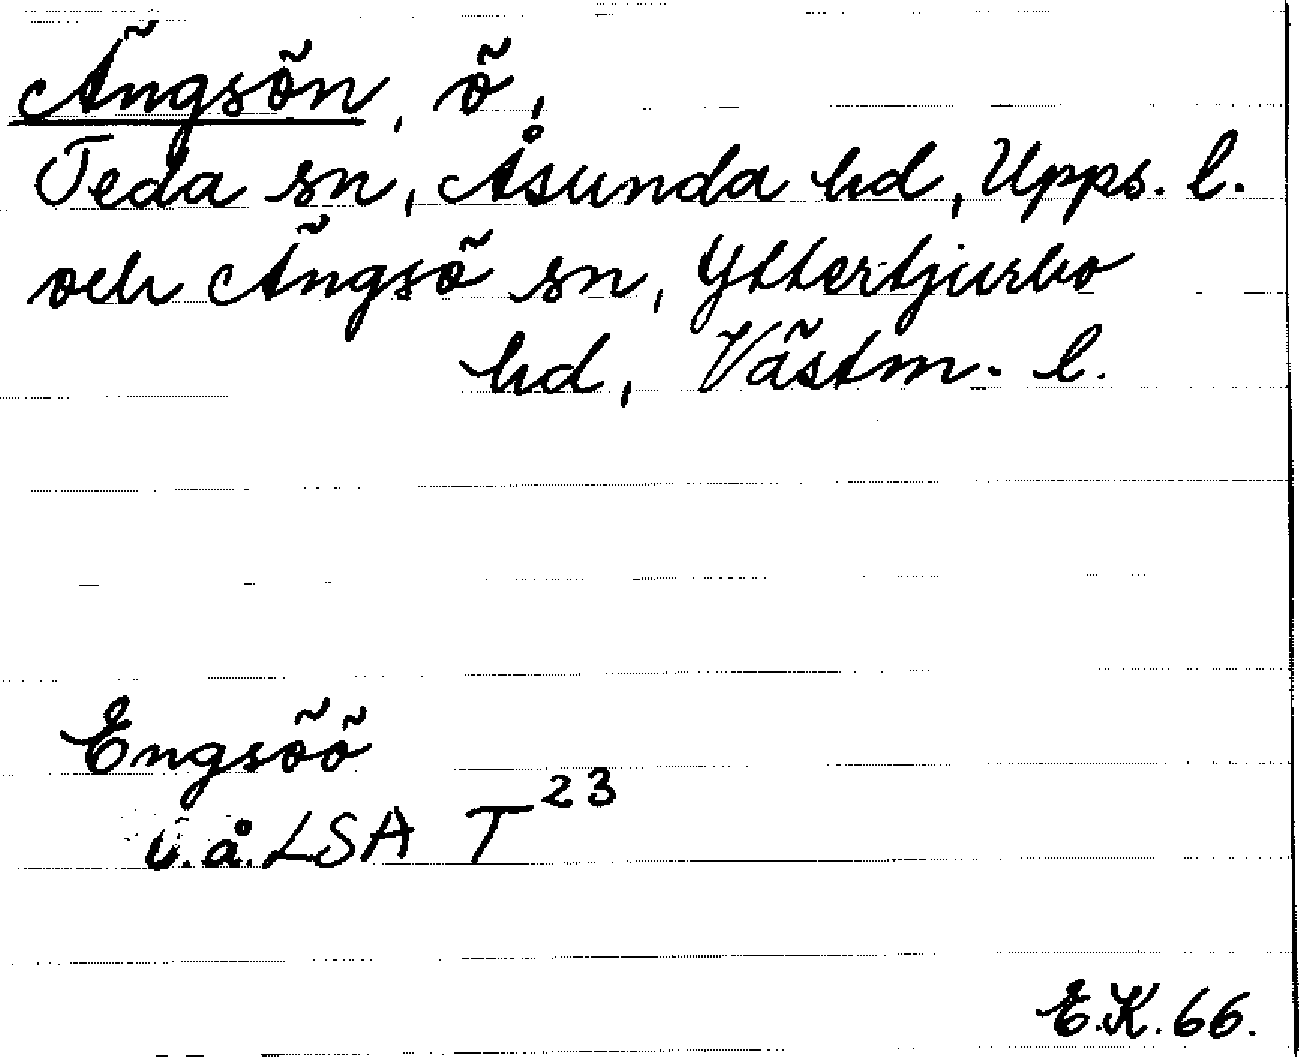 Ängsön, ö,
Teda sn, Åsunda hd, Upps. l.
och Ängsö sn, Yttertjurbo
hd, Västm. l.
Engsöö
u.å. LSA T23
E.K. 66.